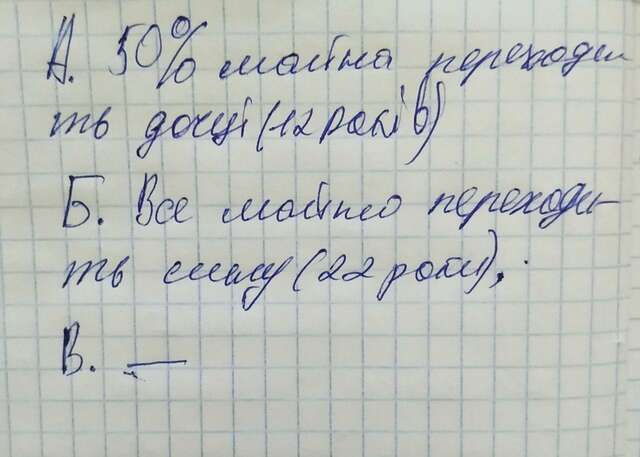 А. 50% майна переходи
ть дочці (12 років)
Б. Все майно переходи-
ть сину (22 роки),.
В. —